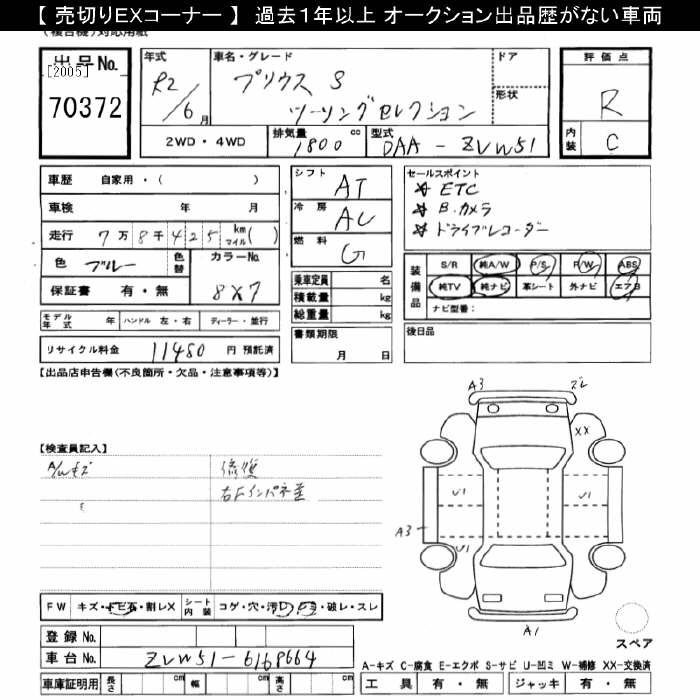 【 売切りEXコーナー 】 過去1年以上 オークション出品歴がない車両
(複合機)対応用紙
出品No.
[2005]
70372
年式
R2/6月
車名・グレード
プリウス S
ツーリングセレクション
ドア
形状
評価点
R
内装
C
2WD・4WD
排気量
1800 cc
型式
DAA-ZVW51
車歴 自家用・( )
車検 年 月
走行 7万8千425 km マイル( )
色 ブルー
色替
カラーNo.
8X7
保証書 有・無
シフト
AT
冷房
AC
燃料
G
乗車定員 名
積載量 kg
総重量 kg
セールスポイント
☆ ETC
☆ B.カメラ
☆ ドライブレコーダー
装備品
S/R 純A/W P/S P/W ABS
純TV 純ナビ 革シート 外ナビ エアB
ナビ型番:
モデル年式 年 ハンドル 左・右 ディーラー・並行
書類期限
月 日
後日品
リサイクル料金 11480 円 預託済
【出品店申告欄(不良箇所・欠品・注意事項等)】
【検査員記入】
A/Wキズ
修復
右Fインパネ歪
A3
ズレ
XX
U1
U1
A3
U1
A1
スペア
FW キズ・トビ石・割レX
シート内装 コゲ・穴・汚レ・破レ・スレ
登録No.
車台No. ZVW51-6168664
車庫証明用 長さ cm 幅 cm 高さ cm
A-キズ C-腐食 E-エクボ S-サビ U-凹ミ W-補修 XX-交換済
工具 有・無 ジャッキ 有・無